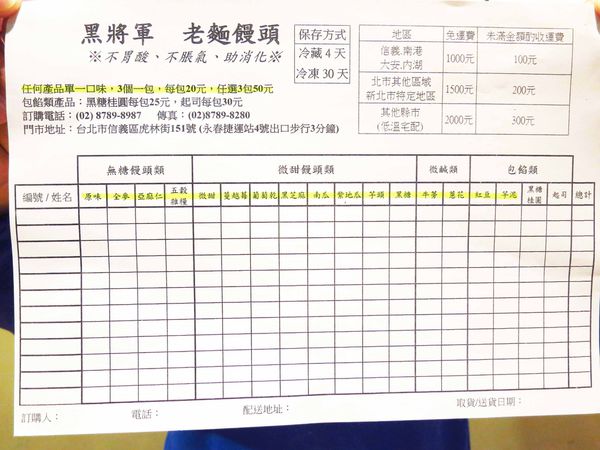 黑將軍 老麵饅頭
※不胃酸、不脹氣、助消化※
任何產品單一口味，3個一包，每包20元，任選3包50元
包餡類產品：黑糖桂圓每包25元，起司每包30元
訂購電話：(02) 8789-8987 傳真：(02)8789-8280
門市地址：台北市信義區虎林街151號 (永春捷運站4號出口步行3分鐘)
保存方式
冷藏 4天
冷凍 30天
地區 免運費 未滿金額酌收運費
信義.南港
大安.內湖 1000元 100元
北市其他區域
新北市特定地區 1500元 200元
其他縣市
(低溫宅配) 2000元 300元
無糖饅頭類 微甜饅頭類 微鹹類 包餡類
編號/姓名 原味 全麥 亞麻仁 五穀雜糧 微甜 蔓越莓 葡萄乾 黑芝麻 南瓜 紫地瓜 芋頭 黑糖 牛蒡 蔥花 紅豆 芋泥 黑糖桂圓 起司 總計
訂購人： 電話： 配送地址： 取貨/送貨日期：